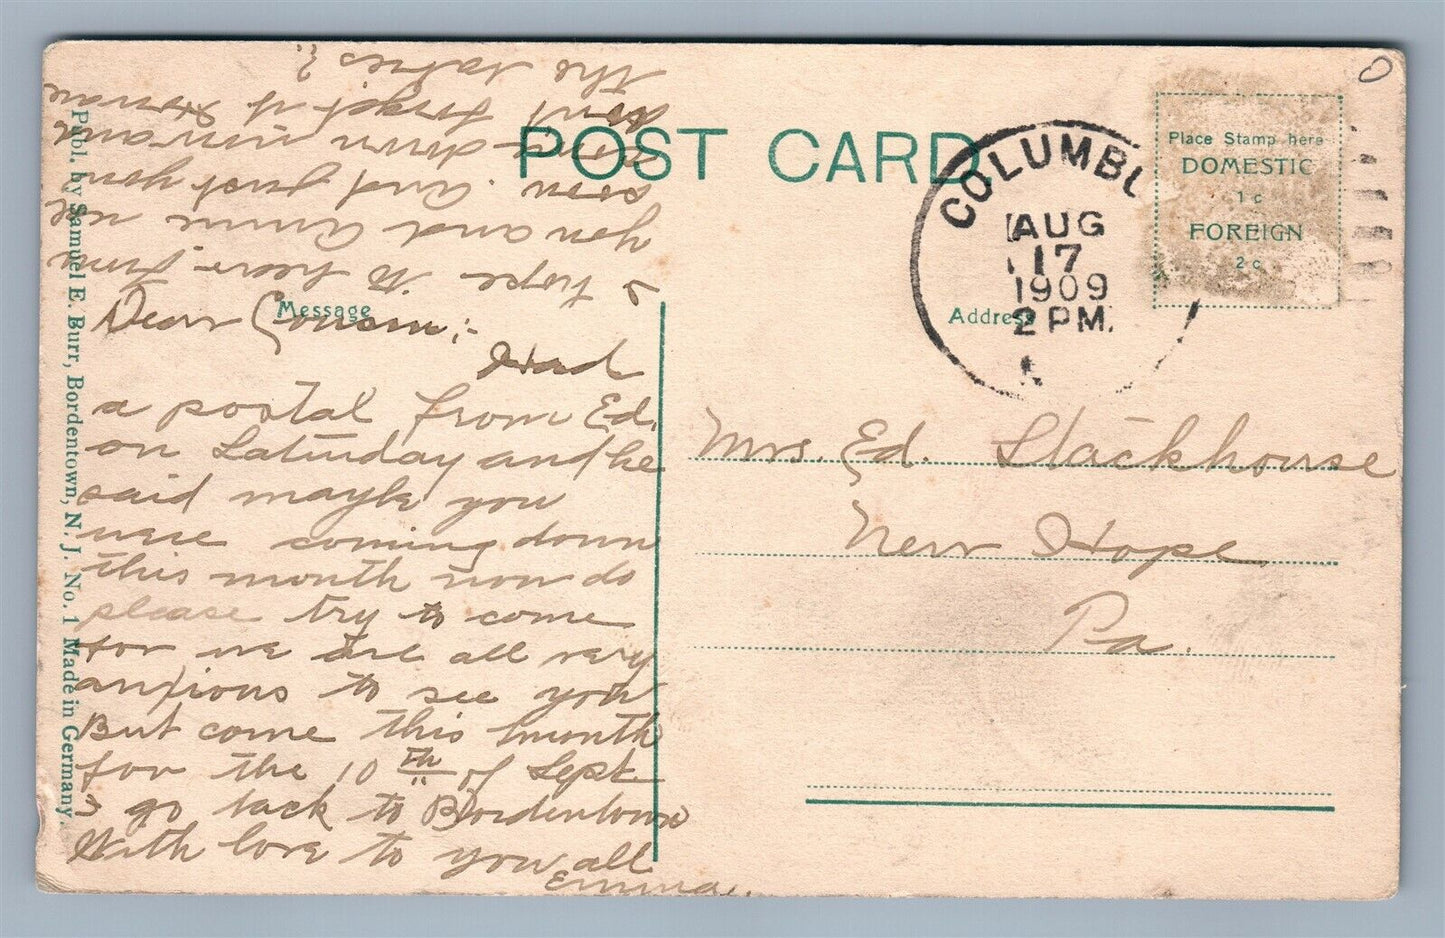 POST CARD
Message
Address
Place Stamp here
DOMESTIC
1 c
FOREIGN
2 c
COLUMBU
AUG
17
1909
2 PM.
Publ. by Samuel E. Burr, Bordentown, N. J. No. 1 Made in Germany.
Dear Cousin:-
Had
a postal from Ed.
on Saturday and he
said maybe you
were coming down
this month now do
please try to come
for we are all very
anxious to see you
But come this month
for the 10th of Sept
I go back to Bordentown
With love to you all
Emma.
I hope to hear from
you and Annie
soon. And just you
come down now and
don't forget
the babies?
Mrs. Ed. Stackhouse
New Hope
Pa.